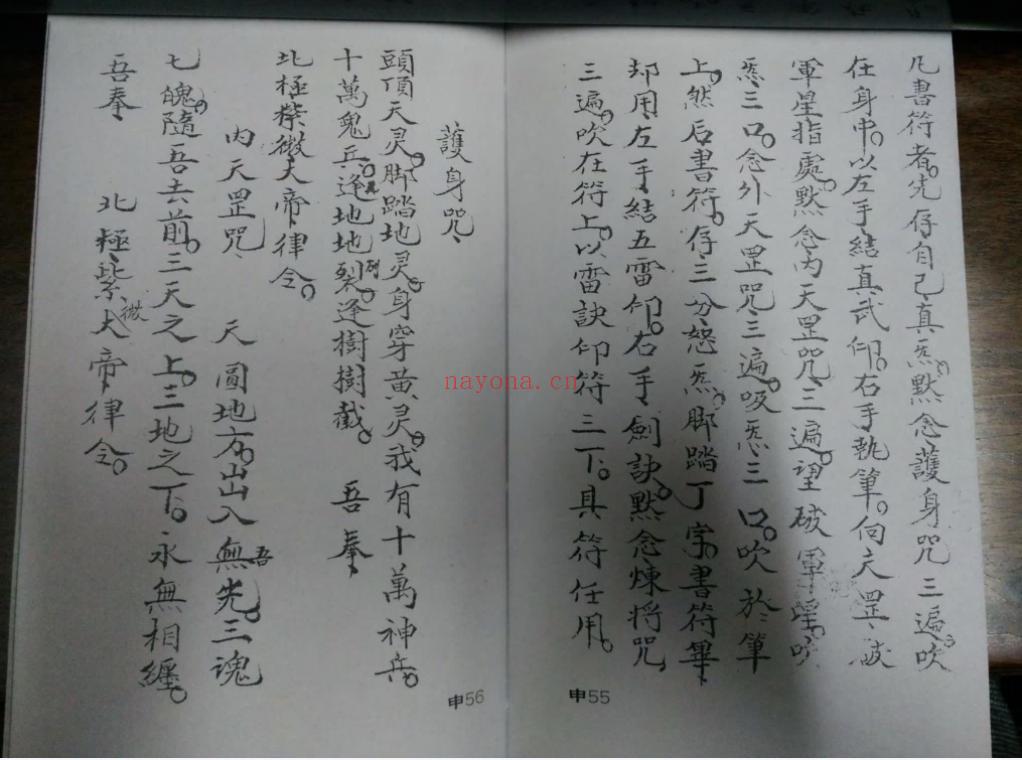 凡書符者。先存自己真炁。默念護身咒三遍。吹
在身中。以左手結真武印。右手執筆。向天罡、破
軍星指處。默念內天罡咒三遍。望破軍
炁三口。念外天罡咒三遍。吸炁三口。吹於筆
上。然后書符。存三分怒炁。脚踏丁字。書符畢、
却用左手結五雷印。右手劍訣。默念煉將咒
三遍。吹在符上。以雷訣印符三下。具符任用。
申55
護身咒、
頭頂天灵。脚踏地灵。身穿黃灵。我有十萬神兵。
十萬鬼兵。逢地地裂。逢樹樹截。 吾奉、
北極紫微大帝律令。
內天罡咒、 天圓地方。出入無吾先。三魂
七魄。隨吾去前。三天之上。三地之下。永無相纏。
吾奉、 北極紫微大帝律令。
申56
nayona.cn